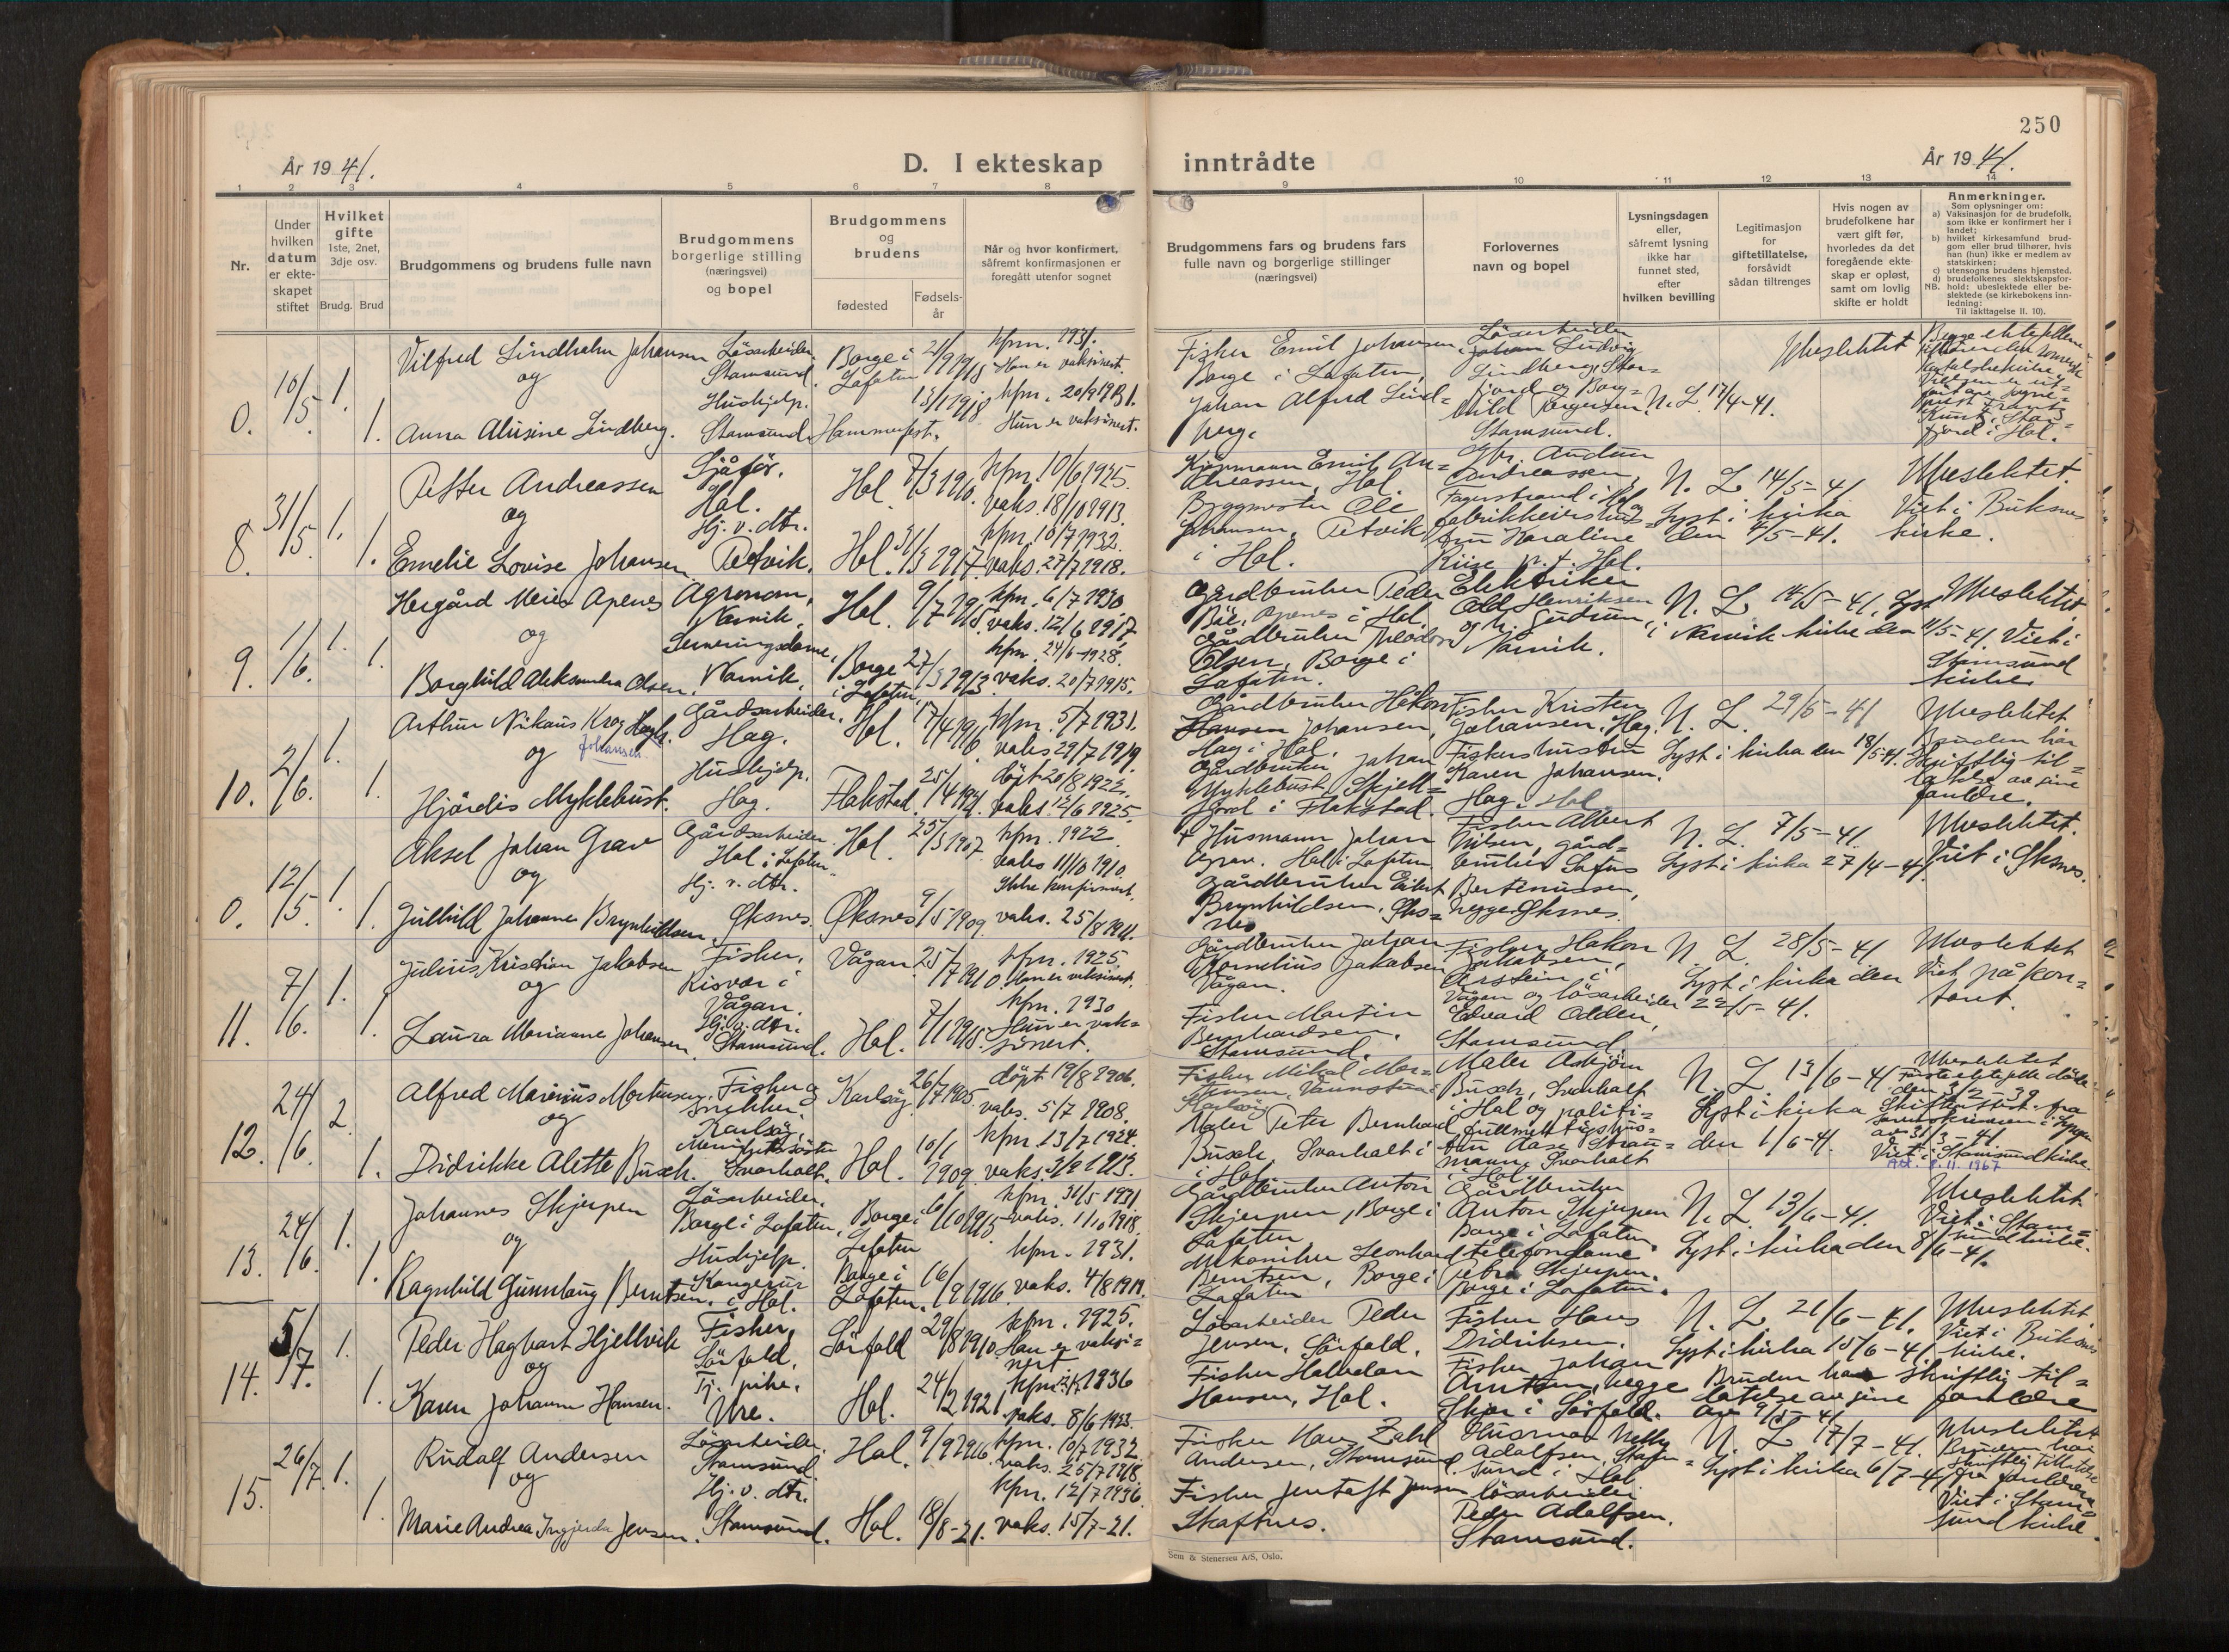 250
År 1941.
D. I ekteskap
inntrådte
År 1941.
1 2 3 4 5 6 7 8 9 10 11 12 13 14
Nr.
Under hvilken datum er ekte-skapet stiftet
Hvilket gifte
1ste, 2net, 3dje osv.
Brudg. Brud
Brudgommens og brudens fulle navn
Brudgommens borgerlige stilling (næringsvei) og bopel
Brudgommens og brudens
fødested
Fødsels-år
Når og hvor konfirmert, såfremt konfirmasjonen er foregått utenfor sognet
Brudgommens fars og brudens fars fulle navn og borgerlige stillinger (næringsvei)
Forlovernes navn og bopel
Lysningsdagen eller, såfremt lysning ikke har funnet sted, efter hvilken bevilling
Legitimasjon for giftetillatelse, forsåvidt sådan tiltrenges
Hvis nogen av brudefolkene har vært gift før, hvorledes da det foregående ekte-skap er opløst, samt om lovlig skifte er holdt
Anmerkninger.
Som oplysninger om:
a) Vaksinasjon for de brudefolk, som ikke er konfirmert her i landet;
b) hvilket kirkesamfund brud-gom eller brud tilhører, hvis han (hun) ikke er medlem av statskirken;
c) utensogns brudens hjemsted.
d) brudefolkenes slektskapsfor-hold: ubeslektede eller be-slektede (se kirkebokens inn-ledning:
NB.
Til iakttagelse II. 10).
0. 10/5. 1. 1.
Vilfred Lindholm Johansen
og
Anna Alusine Lindberg.
Løsarbeider.
Stamsund.
Hushjelp.
Stamsund.
Borge i
Lofoten
Hammerfest.
21/9 1915
13/1 1918
kfm. 1931.
Han er vaksinert.
kfm. 20/9 1931.
Hun er vaksinert.
Fisker Emil Johansen,
Borge i Lofoten,
Johan Alfred Lind=
berg.
Løsarbeider
Johan Ludvig
Lindberg, Stam=
Stamsund.
N. L. 17/4-41.
Ubeslektet
Begge ektefellene
fjord i Hol.
8. 31/5. 1. 1.
Petter Andreassen
og
Emelie Lovise Johansen
Sjåfør.
Hol.
Hj. v. dtr.
Petvik.
Hol.
Hol.
7/3 1910.
31/3 1917.
kfm. 10/6 1925.
vaks. 18/10 1913.
kfm. 10/7 1932.
vaks. 27/7 1918.
Kjøpmann Emil An=
dreassen, Hol
Byggmester Ole
Johansen, Petvik
i Hol.
Andreassen,
Fagerstrand i Hol og
fru Karaline
Riise p. t. Hol.
N. L. 14/5-41
Lyst i kirka
den 4/5-41.
Ubeslektet.
Viet i Buksnes
kirke.
9. 1/6. 1. 1.
Hergård Meier Apenes
og
Borghild Aleksandra Olsen.
Agronom,
Narvik.
Serveringsdame,
Narvik.
Hol.
Borge
i Lofoten
9/7 1915.
27/3 1913
kfm. 6/7 1930
vaks. 12/6 1917
kfm. 24/6-1928.
vaks. 20/7 1915.
Gårdbruker Peder
Apenes i Hol.
Gårdbruker Theodor
Olsen, Borge i
Lofoten.
Elektriker
Odd Henriksen
og fr. Gudrun,
Narvik.
N. L. 14/5-41. Lyst
i Narvik kirke den 11/5-41.
Ubeslektet.
Viet i
Stamsund
kirke.
10. 2/6. 1. 1.
Arthur Nikaus Krog Hagh.
Johansen
og
Hjørdis Myklebust.
Gårdsarbeider.
Hag.
Hushjelp.
Hag.
Hol.
Flakstad.
17/4 1916
25/4 1921.
kfm. 5/7 1931.
vaks 29/7 1919.
døpt 20/8 1922.
vaks. 12/6 1925.
Gårdbruker Håkon
Hansen Johansen,
Hag i Hol.
Gårdbruker Johan
Myklebust, Skjell=
fjord i Flakstad.
Fisker Kristen
Johansen, Hag.
Fiskers hustru
Karen Johansen.
Hag. Hol.
N. L. 29/5-41
Lyst i kirka den 18/5-41.
Ubeslektet.
Bruden har
skriftlig til=
latelse av sine
foreldre.
0. 12/5. 1. 1.
Aksel Johan Grav
og
Gulhild Johanne Brynhildsen.
Gårdsarbeider
Hol i Lofoten.
Hj. v. dtr.
Øksnes.
Hol.
Øksnes
25/3 1907
9/5 1909
kfm. 1922.
vaks 11/10 1910.
Ikke konfirmert.
vaks. 25/8 1911.
+ Husmann Johan
Grav. Hol i Lofoten
Gårdbruker Eilert
Brynhildsen, Øks=
nes
Fisker Albert
Nilsen, gård=
bruker Lofus
Bertinussen,
begge Øksnes.
N. L. 7/5-41.
Lyst i kirka 27/4-41.
Ubeslektet.
Viet i Øksnes.
11. 7/6. 1. 1.
Julius Kristian Jakobsen
og
Laura Marianne Johansen
Fisker,
Risvær i
Vågan.
Hj. v. dtr.
Stamsund.
Vågan
Hol.
25/7 1910
7/1 1915.
kfm. 1925
Han er vaksinert.
kfm. 1930
Hun er vak=
sinert.
Gårdbruker Johan
Kornelius Jakobsen
Vågan.
Fisker Martin
Bernhardsen.
Stamsund.
Fisker Håkon
Jakobsen,
Årstein i
Vågan og løsarbeider
Edvard Odden,
Stamsund
N. L. 28/5-41
Lyst i kirka den
22/5-41.
Ubeslektet
Viet på kon=
toret.
12. 24/6. 2. 1.
Alfred Marinius Mortensen
og
Didrikke Alette Busch.
Fisker og
snekker.
Karlsøy.
Menighetssøster
Svarholt.
Karlsøy
Hol.
26/7 1905
10/1 1909
døpt 19/8 1906.
vaks. 5/7 1908.
kfm. 13/7 1924.
vaks. 3/9 1913.
Fisker Mikal Mor=
tensen, Vannstua
Karlsøy
Maler Peter Bernhard
Busch, Svarholt i
i Hol
Maler Asbjørn
Busch, Svarholt
i Hol og politi=
fullmektigs hus=
tru Aase Strau=
mann Svarholt
i Hol.
N. L. 13/6-41
Lyst i kirka
den 1/6-41.
Ubeslektet
Første ektefelle døde
Skifteattest fra
av 31/3-41.
Viet i Stamsund kirke.
Att. 8.11.1967
13. 24/6. 1. 1.
Johannes Skjerpen
og
Ragnhild Gunnlaug Berntsen.
Løsarbeider.
Borge i Lofoten,
Hushjelp.
Kangerur
i Hol.
Borge i
Lofoten
Borge i
Lofoten.
6/10 1913
16/9 1916
kfm. 31/5 1931
vaks. 1/10 1918.
kfm. 1931.
vaks. 4/8 1919.
Gårdbruker Anton
Skjerpen, Borge i
Lofoten
Mekaniker Leonhard
Berntsen, Borge i
Lofoten
Gårdbruker
Anton Skjerpen
Borge i Lofoten.
telefondame
Petra Skjerpen.
Borge i Lofoten.
N. L. 13/6-41.
Lyst i kirka den 8/6-41.
Ubeslektet
Viet i Stam=
sund kirke.
14. 5/7. 1. 1.
Peder Hagbart Hjellvik
og
Karen Johanne Hansen.
Fisker,
Sørfold,
Tj. pike.
Ure.
Sørfold
Hol.
29/8 1910
24/2 1921
kfm. 1925.
Han er vaksi=
nert
kfm. 1936
vaks. 8/6 1923.
Løsarbeider Peder
Jensen, Sørfold.
Fisker Halvdan
Hansen, Hol.
Fisker Hans
Didriksen.
Fisker Johan
Arntsen, begge
Skjør i Sørfold.
N. L. 21/6-41.
Lyst i kirka 15/6-41
Ubeslektet
Viet i Buksnes
kirke.
Bruden har skriftlig til=
latelse av sine foreldre
av 9/5-41
15. 26/7. 1. 1.
Rudolf Andersen
og
Marie Andrea Ingjerda Jensen.
Løsarbeider.
Stamsund
Hj. v. dtr.
Stamsund.
Hol.
Hol.
9/9 1916
18/8-21.
kfm. 10/7 1932.
vaks. 25/7 1918.
kfm. 12/7 1936
vaks. 15/7-21.
Fisker Hans Zahl
Andersen, Stamsund
Fisker Jentoft Jensen
Skaftnes.
Husmor Nelly
Adolfsen, Stam=
sund i Hol
løsarbeider
Peder Adolfsen.
Stamsund.
N. L. 17/7-41.
Lyst i kirka 6/7-41
Ubeslektet
Bruden har
skriftlig tillatelse
fra foreldrene
Viet i Stam=
sund kirke.
Sem & Stenersen A/S, Oslo.